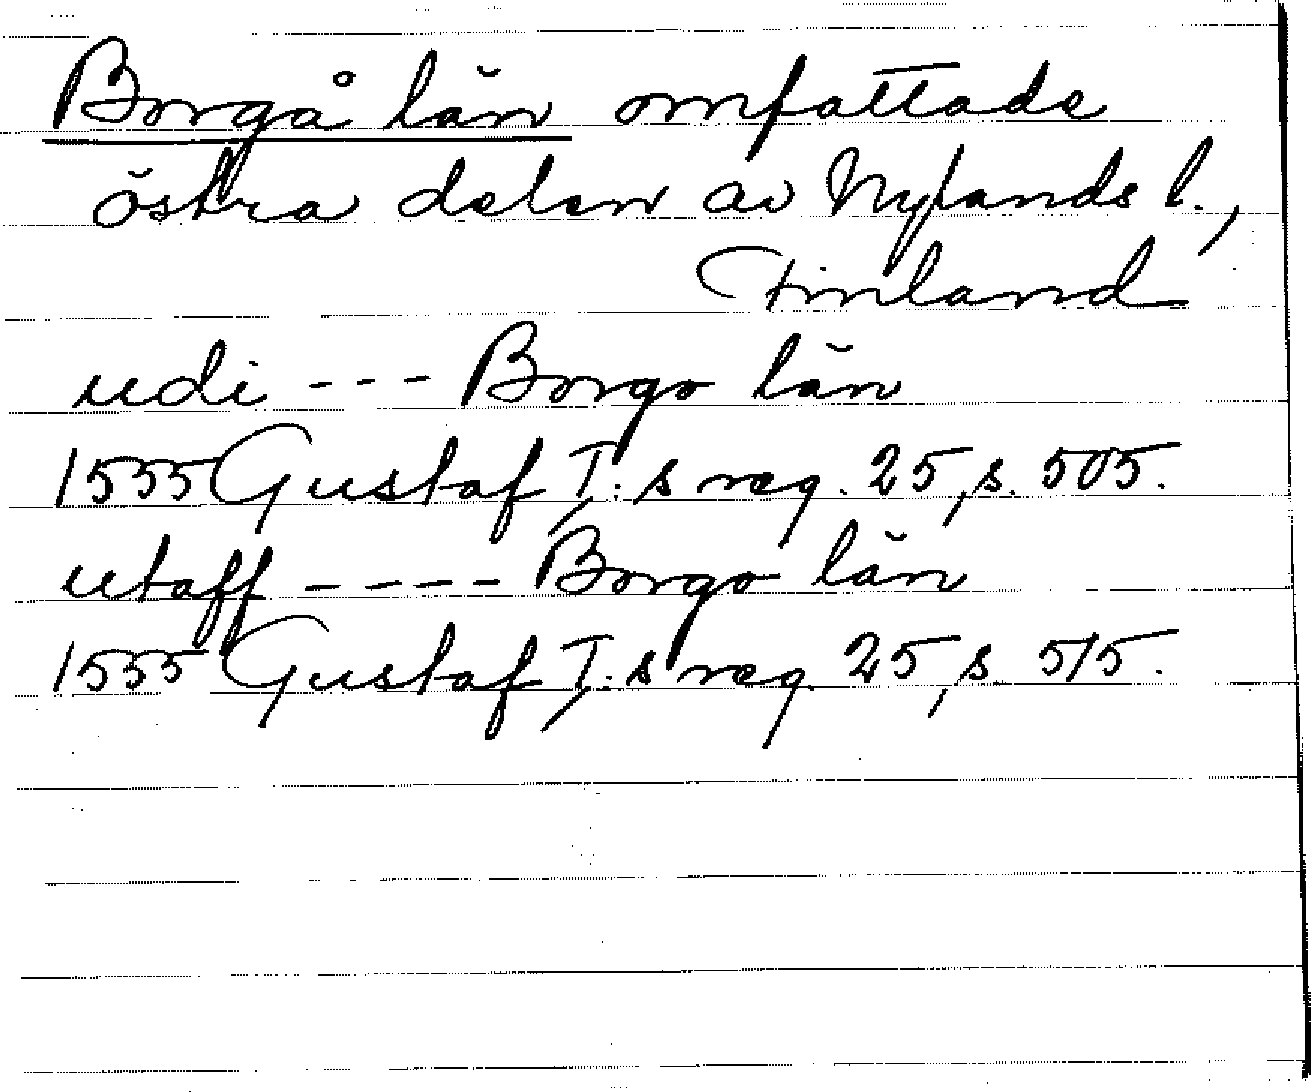 Borgå län omfattade
östra delen av Nylands l.,
Finland
udi --- Borgo län
1555 Gustaf I:s reg. 25, s. 505.
utaff ---- Borgo län
1555 Gustaf I:s reg. 25, s. 515.